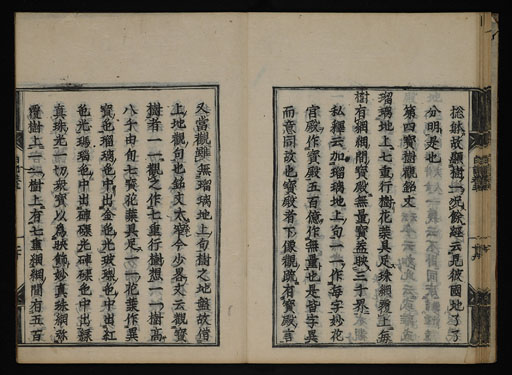 惣妹故顯樹一況餘經云見彼國地了了
分明是也
第四寶樹觀鉛文
瑠璃地上七重行樹花葉具足珠網覆上每
樹有網網間寶殿無量寶蓋映三千界
私釋云加瑠璃地上句一一作每字妙花
宮殿作寶殿五百億作無量也是皆字異
而意同故也寶殿者下像觀疏有寶殿言
又當觀雖無瑠璃地上句樹之地盤故借
上地觀句也鉛文太廣今少畧文云觀寶
樹者一一觀之作七重行樹想一一樹高
八千由旬七寶花葉具足一一花葉作異
寶色瑠璃色中出金色光玻瓈色中出紅
色光瑪瑙色中出硨磲光硨磲色中出綠
真珠光一切衆寶以爲映飾妙真珠網弥
覆樹上一一樹上有七重網網間有五百